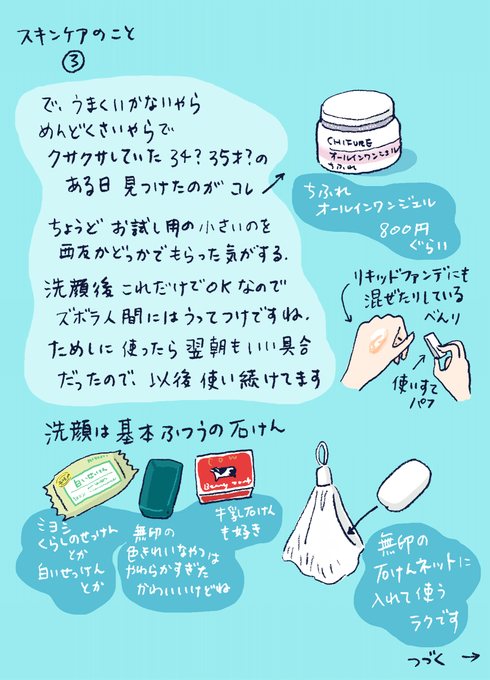 スキンケアのこと
③
で、うまくいかないやら
めんどくさいやらで
クサクサしていた34?35才?の
ある日 見つけたのが コレ
CHIFURE
オールインワンジェル
ちふれ
ちふれ
オールインワンジェル
800円
ぐらい
ちょうど お試し用の小さいのを
西友かどっかでもらった気がする.
洗顔後 これだけでOKなので
ズボラ人間にはうってつけですね.
ためしに 使ったら 翌朝もいい具合
だったので、以後 使い続けてます
リキッドファンデにも
混ぜたりしている
べんり
使いすて
パフ
洗顔は 基本ふつうの石けん
白いせっけん
ミヨシ
くらしのせっけん
とか
白いせっけん
とか
無印の
色きれいなやつは
やわらかすぎた
かわいいけどね
COW
Beauty soap
牛乳石けん
も好き
無印の
石けんネットに
入れて使う
ラクです
つづく →